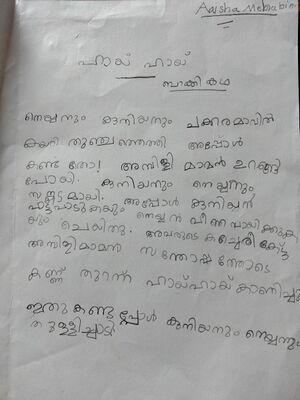 Aarsha Mehabin
ഹായ് ഹായ്
ബാക്കി കഥ
നെയ്യനും കുനിയനും ചക്കരമാവിൽ
കയറി തുഞ്ചത്തെത്തി അപ്പോൾ
കണ്ടതോ! അമ്പിളി മാമൻ ഉറങ്ങി
പോയി. കുനിയനും നെയ്യനും
സങ്കടമായി.
പാട്ടുപാടുകയും അപ്പോൾ കുനിയൻ
യും ചെയ്തു. അവരുടെ കച്ചേരി കേട്ട്
അമ്പിളിമാമൻ സന്തോഷത്തോടെ
കണ്ണ് തുറന്ന് ഹായ്ഹായ് കാണിച്ചു
ഇതു കണ്ടപ്പോൾ കുനിയനും നെയ്യനും
തുള്ളിച്ചാടി